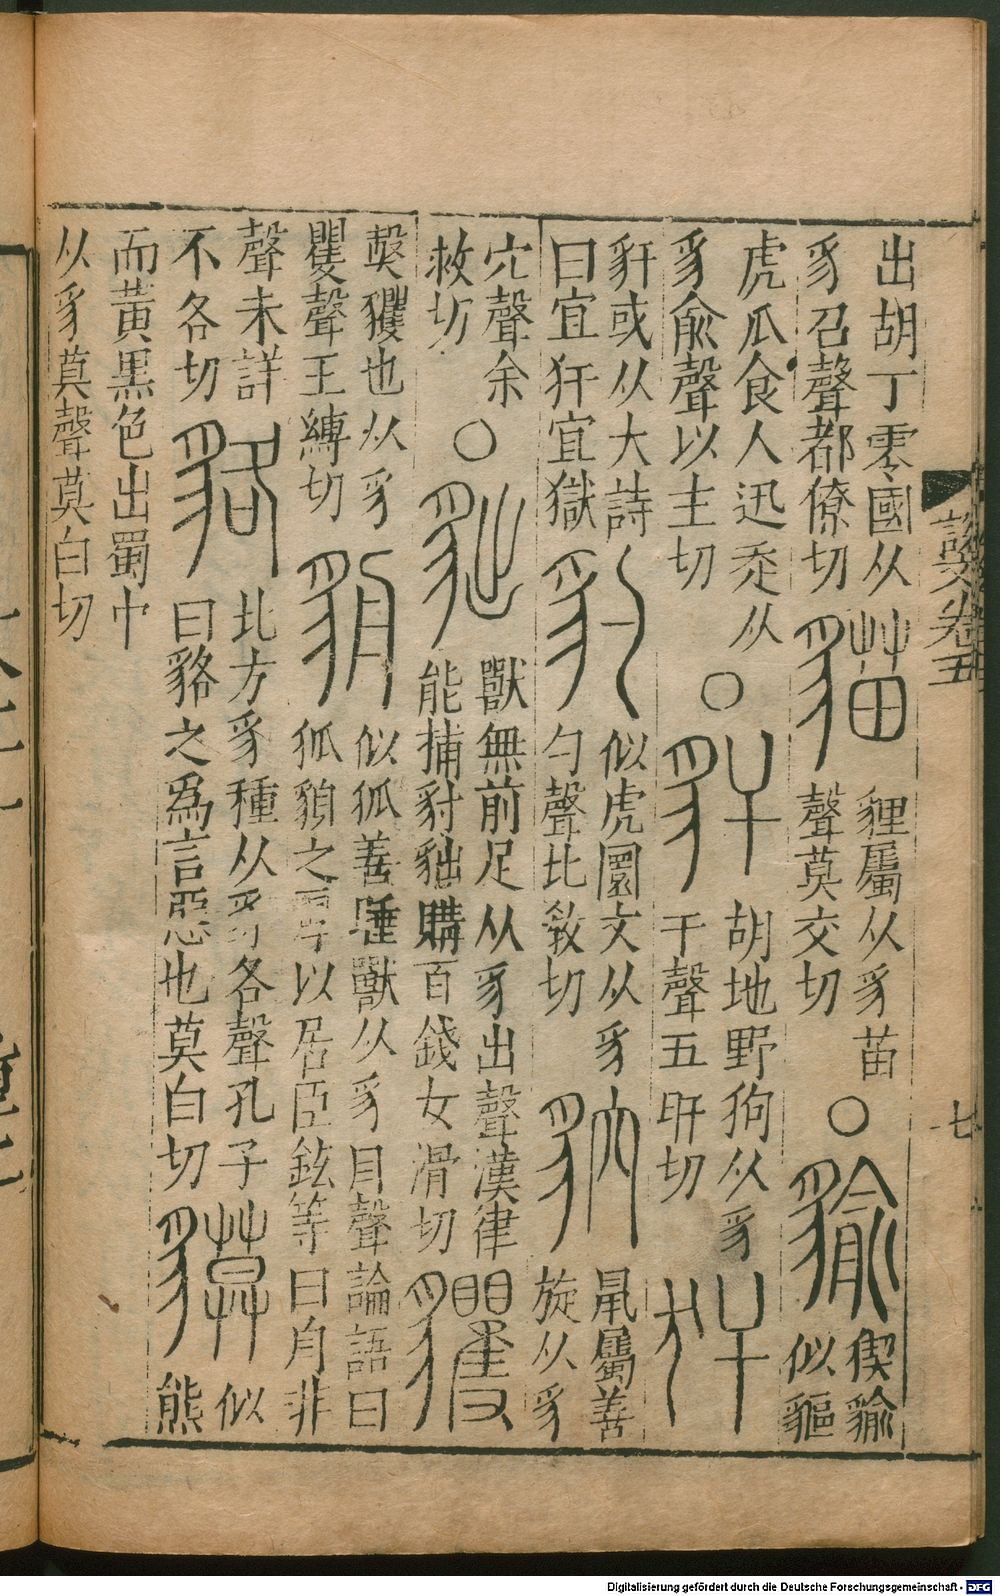 說文卷五
七
出胡丁零國从
豸召聲都僚切
貓
貍屬从豸苗
聲莫交切
○
貐
猰貐
似貙
虎爪食人迅走从
豸俞聲以主切
○
豻
胡地野狗从豸
干聲五旰切
犴
豻或从大詩
曰宜犴宜獄
豹
似虎圜文从豸
勺聲比教切
貁
鼠屬善
旋从豸
穴聲余
救切
○
貀
獸無前足从豸出聲漢律
能捕豺貀購百錢女滑切
貜
貜也从豸
矍聲王縛切
貈
似狐善睡獸从豸聲論語曰
狐之厚以居臣鉉等曰舟非
聲未詳
不各切
貉
北方豸種从豸各聲孔子
曰貉之爲言惡也莫白切
貘
似
熊
而黃黑色出蜀中
从豸莫聲莫白切
Digitalisierung gefördert durch die Deutsche Forschungsgemeinschaft - DFG